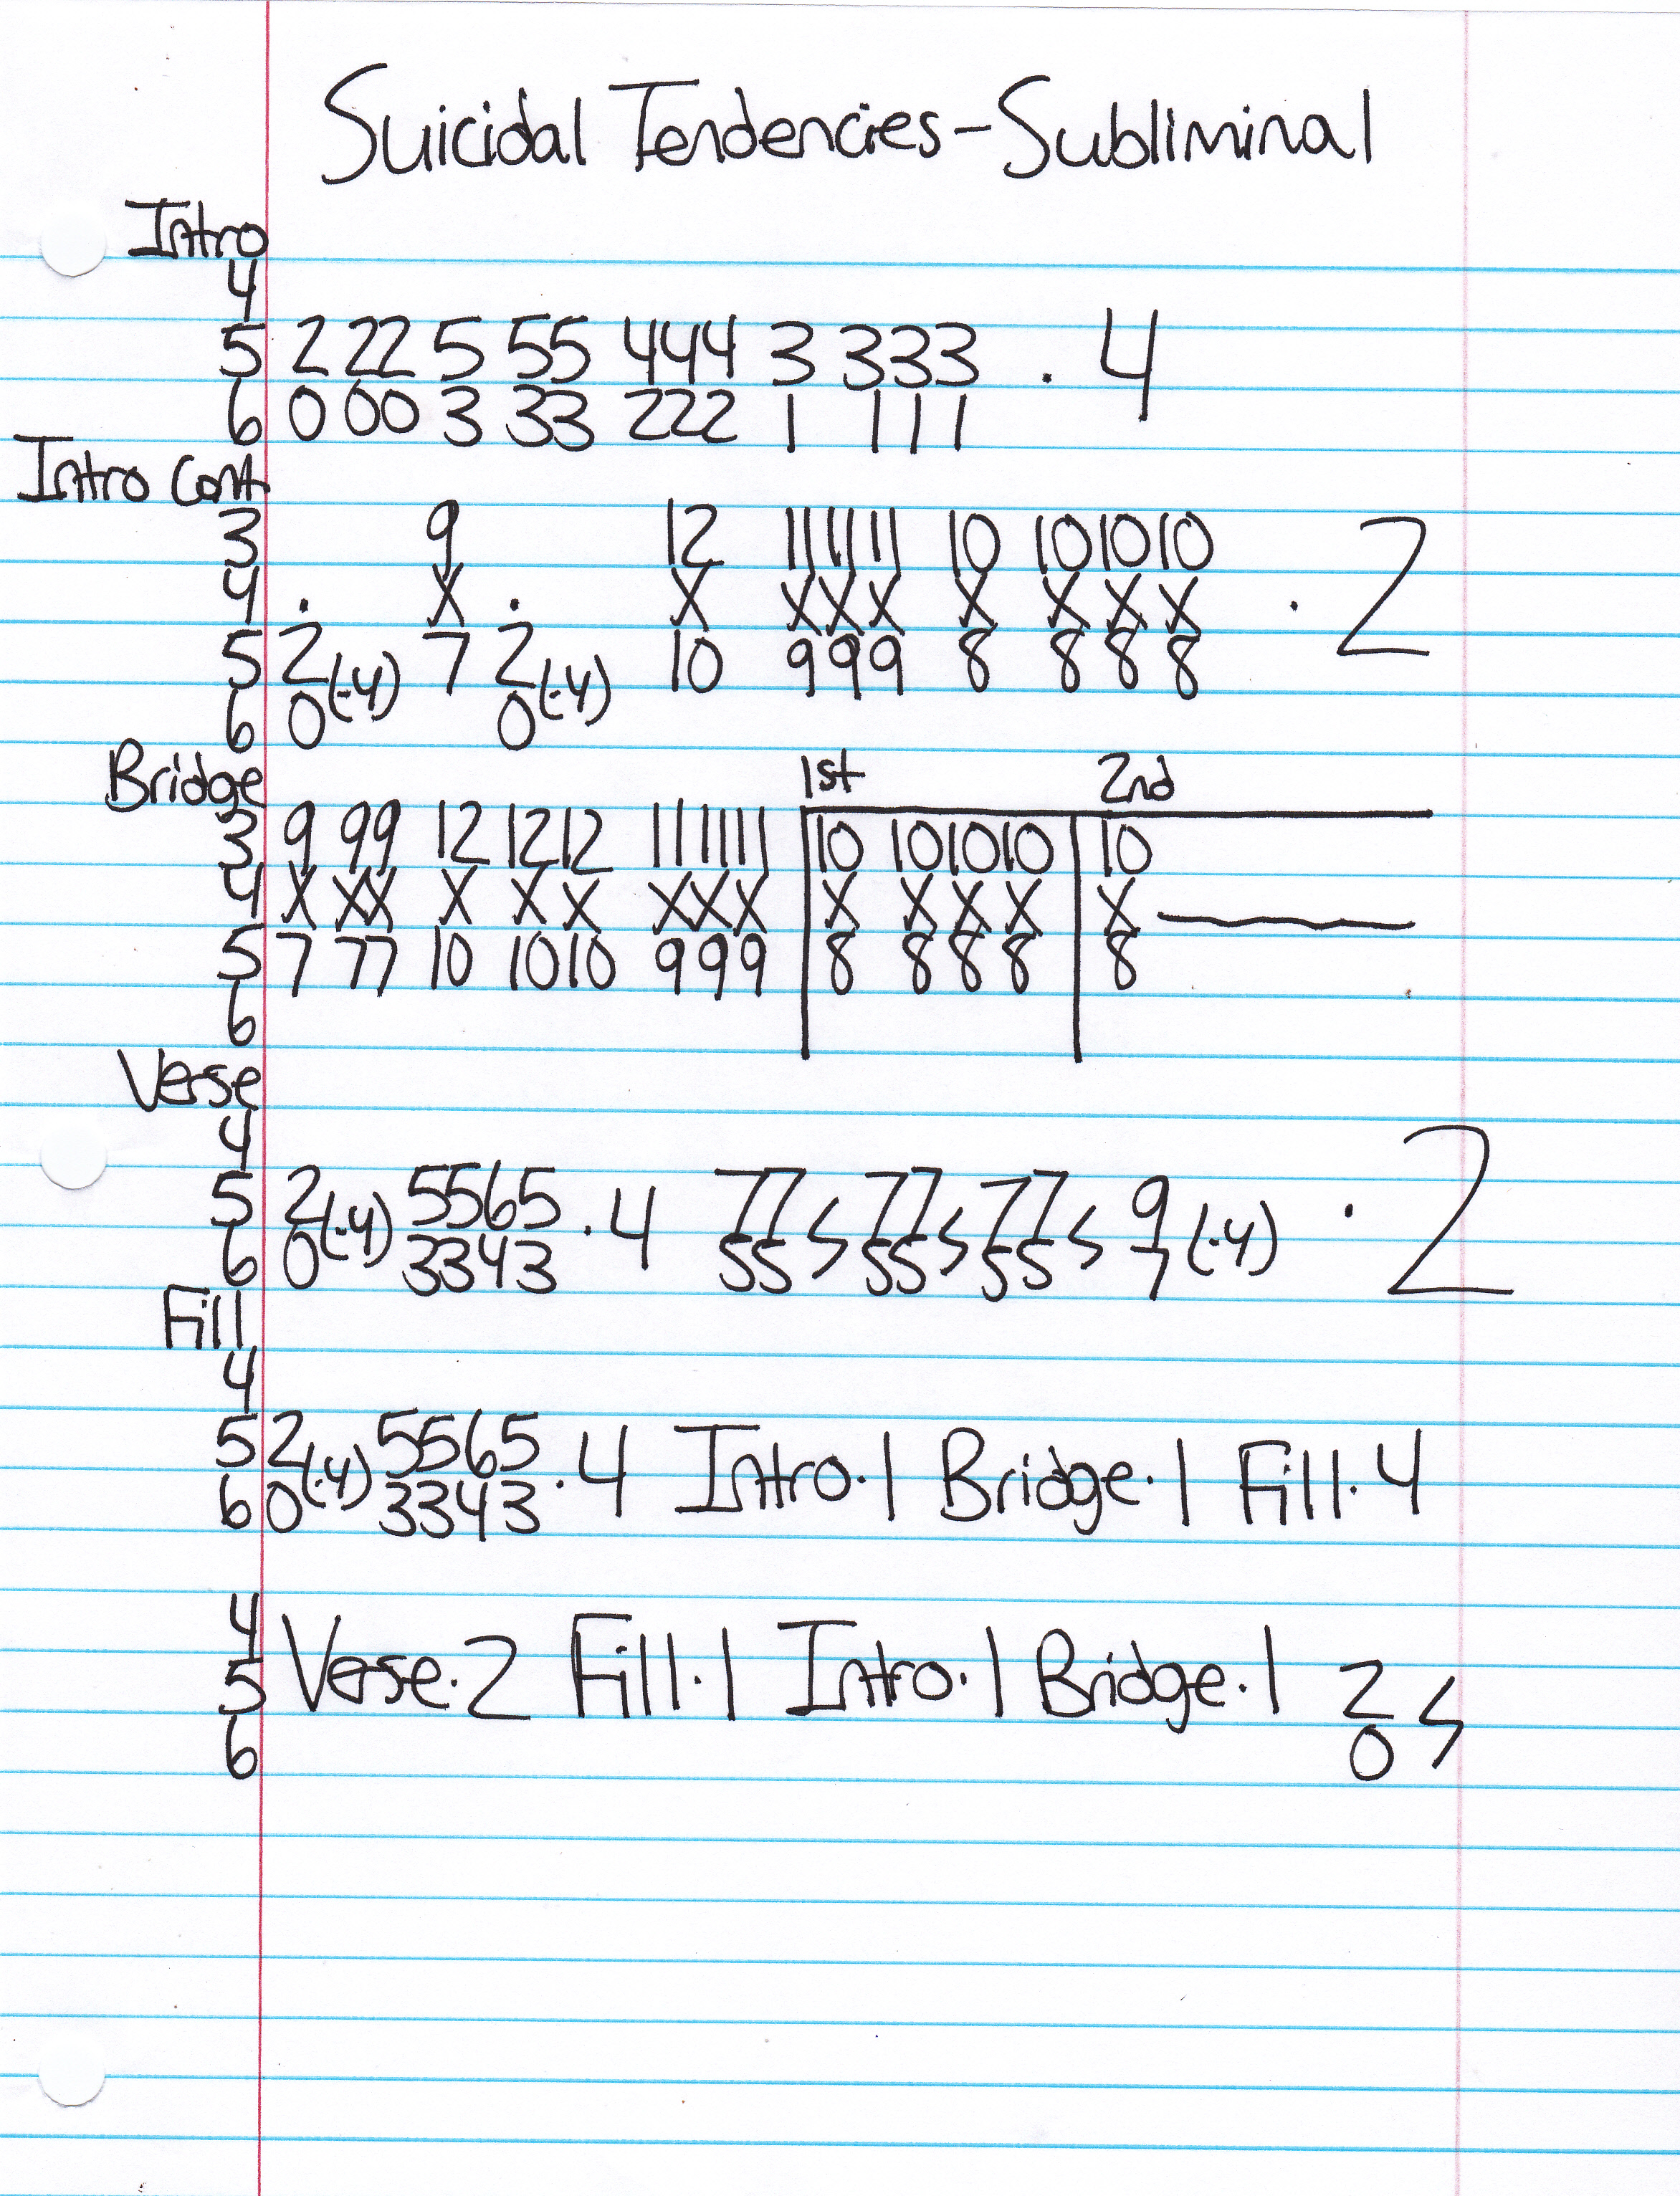 Suicidal Tendencies - Subliminal
Intro
4
5 2 22 5 55 444 3 333 · 4
6 0 00 3 33 222 1 111
Intro Cont.
3 9 12 11 11 11 10 10 10 10
4 · X · X X X X X X X X · 2
5 2 (·4) 7 2 (·4) 10 9 9 9 8 8 8 8
6 0 0
Bridge 1st 2nd
3 9 99 12 12 12 11 11 11 10 10 10 10 10
4 X XX X X X X X X X X X X X
5 7 77 10 10 10 9 9 9 8 8 8 8 8
6
Verse
4
5 2 (·4) 5565 · 4 77 77 77 9 (·4) · 2
6 0 3343 55 55 55 7
Fill
4
5 2 (·4) 5565 · 4 Intro · 1 Bridge · 1 Fill · 4
6 0 3343
4
5 Verse · 2 Fill · 1 Intro · 1 Bridge · 1 2
6 0